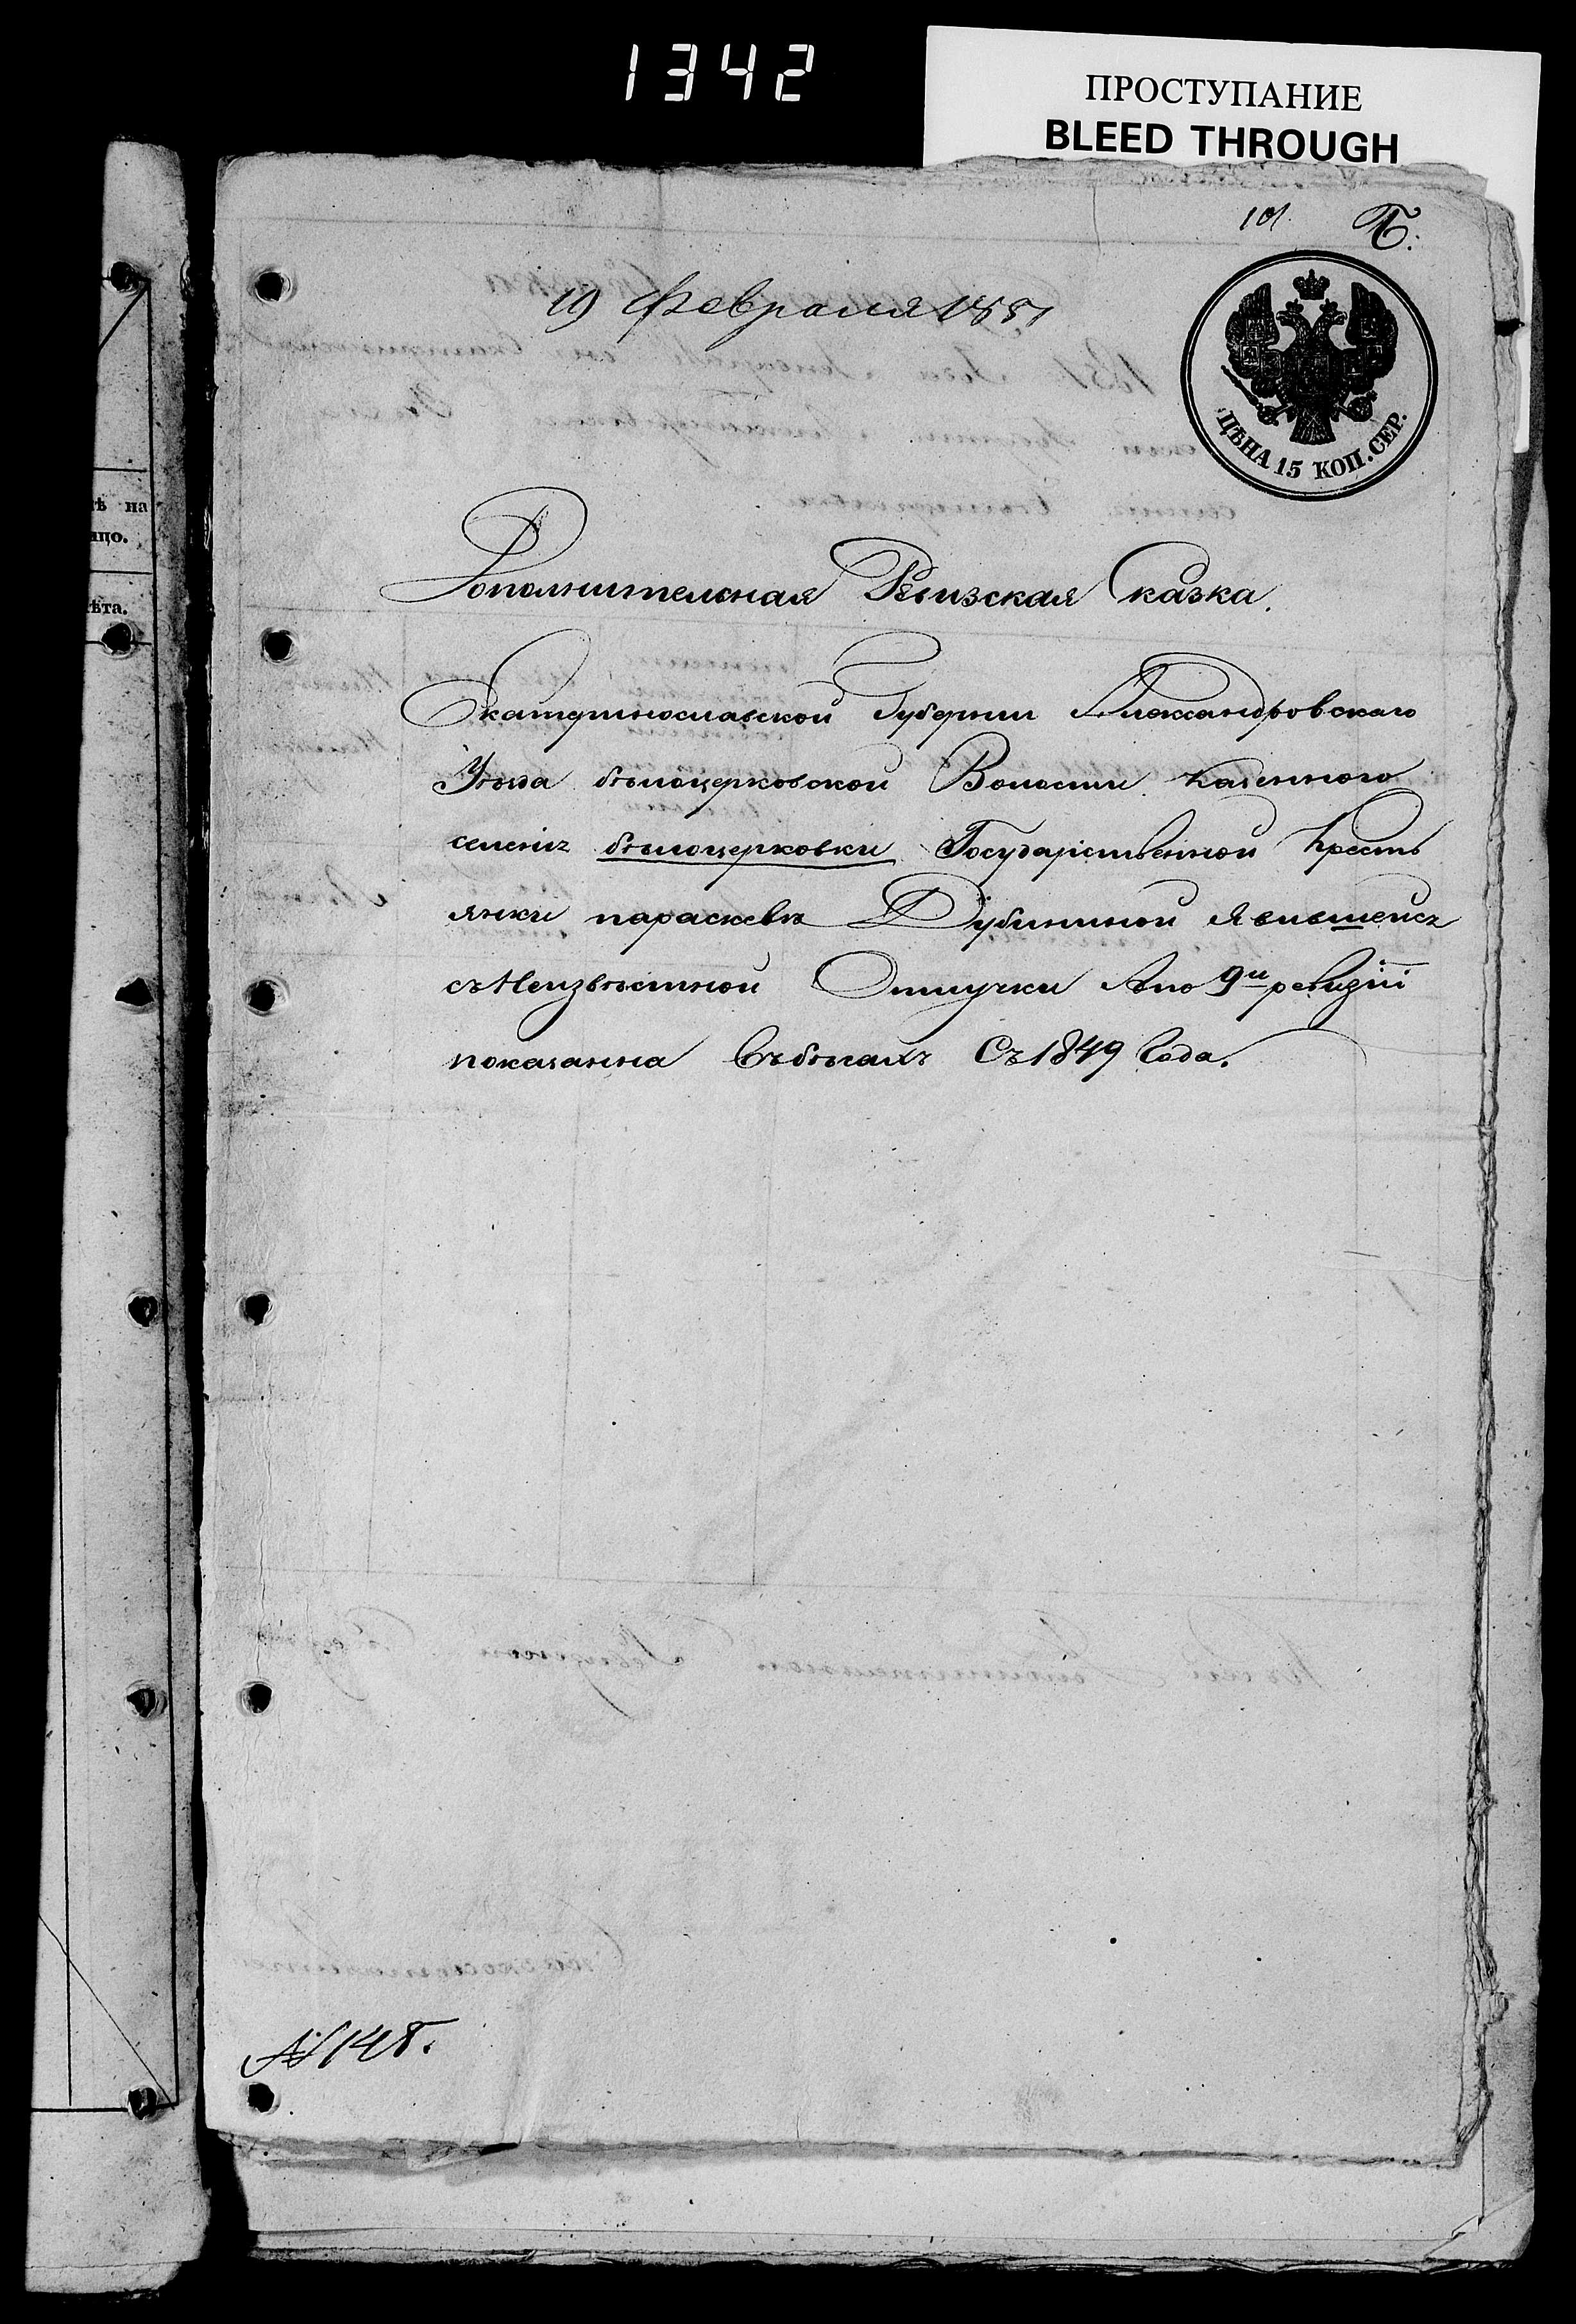 1342
ПРОСТУПАНИЕ
BLEED THROUGH
101. Б.
19 Февраля 1851
ЦѢНА 15 КОП. СЕР.
ѣ на
ицо.
ѣта.
Дополнительная Ревизская Сказка.
Екатеринославской Губернии Александровскаго
Уѣзда бѣлоцерковской Волости казенного
селения бѣлоцерковки Государственной Крестъ
янки параскевы Дубининой явившейся
съ Неизвѣстной Отлучки А по 9й ревизіи
показанна въ бѣгахъ Съ 1849 Года.
№ 148.